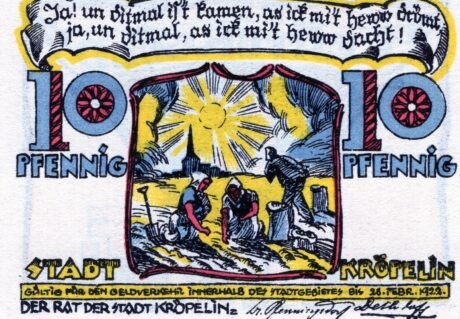 Ja! un ditmal is't kamen, as ick mi't heww drömt,
ja, un ditmal, as ick mi't heww dacht!
10 10
PFENNIG PFENNIG
STADT KRÖPELIN
GÜLTIG FÜR DEN GELDVERKEHR INNERHALB DES STADTGEBIETES BIS 28. FEBR. 1922.
DER RAT DER STADT KRÖPELIN: